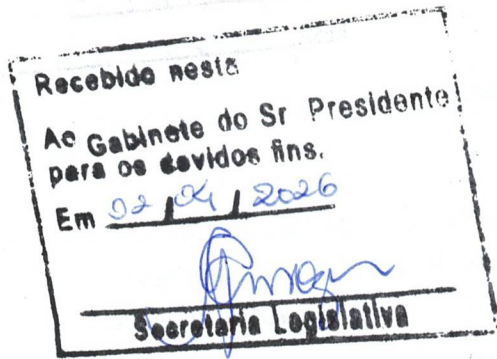 Recebido nesta
Ao Gabinete do Sr Presidente
para os devidos fins.
Em 02 / 04 / 2026
Secretaria Legislativa